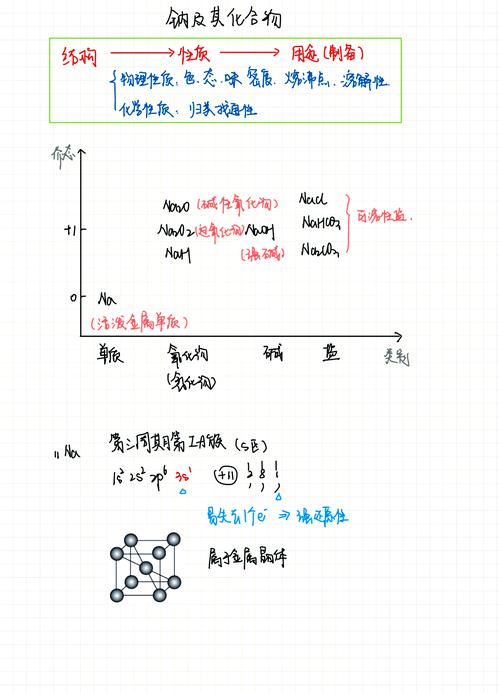 钠及其化合物
结构 → 性质 → 用途(制备)
物理性质：色、态、味、密度、熔沸点、溶解性
化学性质：归类找通性
价态
Na2O (碱性氧化物) NaCl
+1 Na2O2 (过氧化物) NaOH NaHCO3 可溶性盐
NaH (强碱) Na2CO3
0 Na
(活泼金属单质)
单质 氧化物 碱 盐 类别
(氢化物)
1. Na 第三周期第IA族 (s区)
1s² 2s² 2p⁶ 3s¹ +11 2 8 1
易失去1个e⁻ ⇒ 强还原性
属于金属晶体